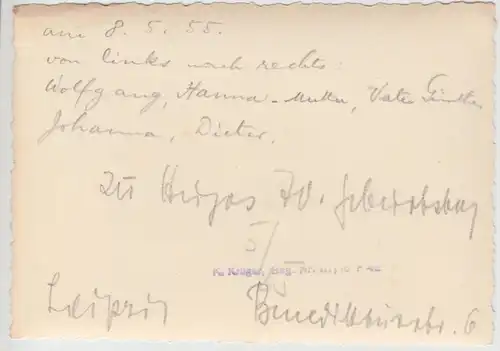 am 8. 5. 55.
von links nach rechts:
Wolfgang, Hanna-Mutter, Vater Günther
Johanna, Dieter.
Zu Hugos 70. Geburtstag
5/
K. Krüger,
Leipzig Benediktusstr. 6